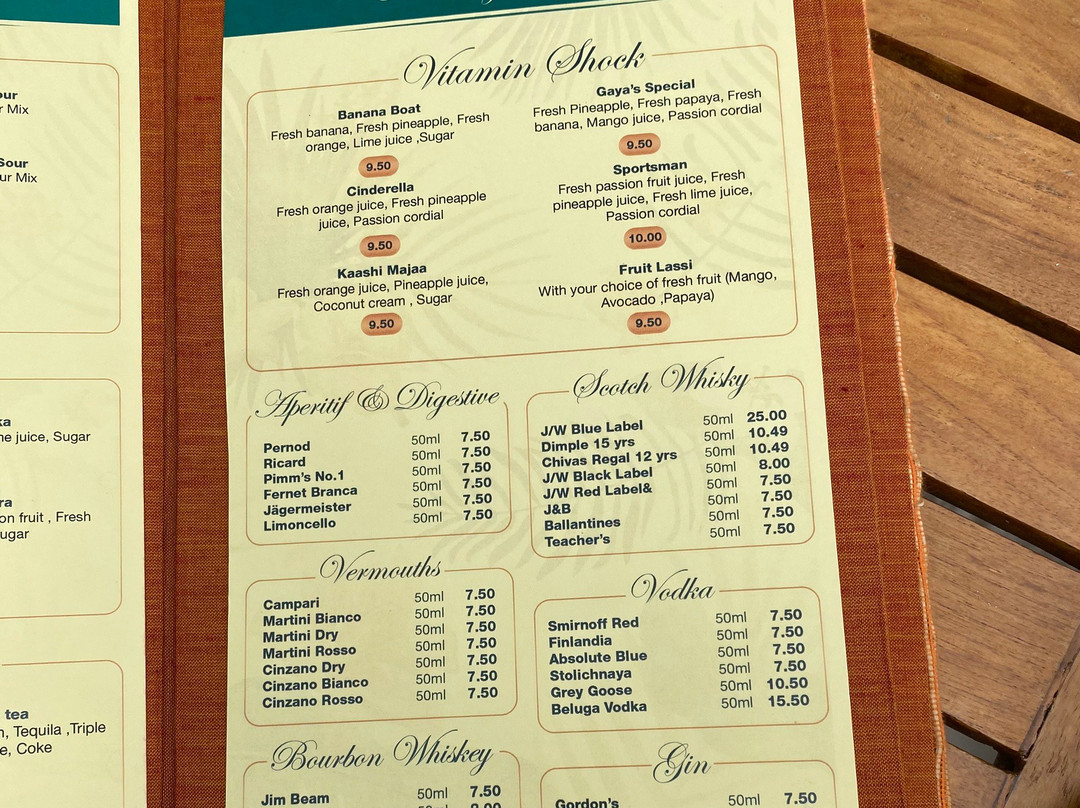 our
r Mix
Sour
ur Mix
ka
ne juice, Sugar
ra
on fruit , Fresh
ugar
tea
n, Tequila ,Triple
e, Coke
Vitamin Shock
Banana Boat
Fresh banana, Fresh pineapple, Fresh
orange, Lime juice ,Sugar
9.50
Cinderella
Fresh orange juice, Fresh pineapple
juice, Passion cordial
9.50
Kaashi Majaa
Fresh orange juice, Pineapple juice,
Coconut cream , Sugar
9.50
Gaya's Special
Fresh Pineapple, Fresh papaya, Fresh
banana, Mango juice, Passion cordial
9.50
Sportsman
Fresh passion fruit juice, Fresh
pineapple juice, Fresh lime juice,
Passion cordial
10.00
Fruit Lassi
With your choice of fresh fruit (Mango,
Avocado ,Papaya)
9.50
Aperitif & Digestive
Pernod 50ml 7.50
Ricard 50ml 7.50
Pimm's No.1 50ml 7.50
Fernet Branca 50ml 7.50
Jägermeister 50ml 7.50
Limoncello 50ml 7.50
Scotch Whisky
J/W Blue Label 50ml 25.00
Dimple 15 yrs 50ml 10.49
Chivas Regal 12 yrs 50ml 10.49
J/W Black Label 50ml 8.00
J/W Red Label& 50ml 7.50
J&B 50ml 7.50
Ballantines 50ml 7.50
Teacher's 50ml 7.50
Vermouths
Campari 50ml 7.50
Martini Bianco 50ml 7.50
Martini Dry 50ml 7.50
Martini Rosso 50ml 7.50
Cinzano Dry 50ml 7.50
Cinzano Bianco 50ml 7.50
Cinzano Rosso 50ml 7.50
Vodka
Smirnoff Red 50ml 7.50
Finlandia 50ml 7.50
Absolute Blue 50ml 7.50
Stolichnaya 50ml 7.50
Grey Goose 50ml 10.50
Beluga Vodka 50ml 15.50
Bourbon Whiskey
Jim Beam 50ml 7.50
Gin
Gordon's 50ml 7.50